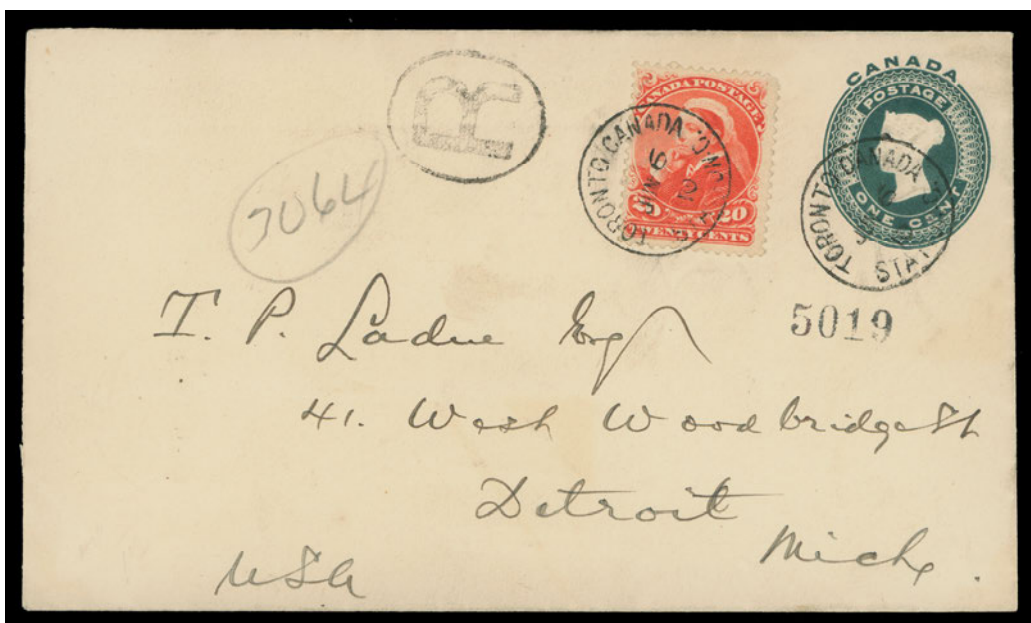 R
7064
CANADA POSTAGE
20 20
TWENTY CENTS
TORONTO CANADA
CANADA
POSTAGE
ONE CENT
TORONTO CANADA
5019
T. P. Ladue Esq
41. West Woodbridge St
Detroit
Mich.
USA